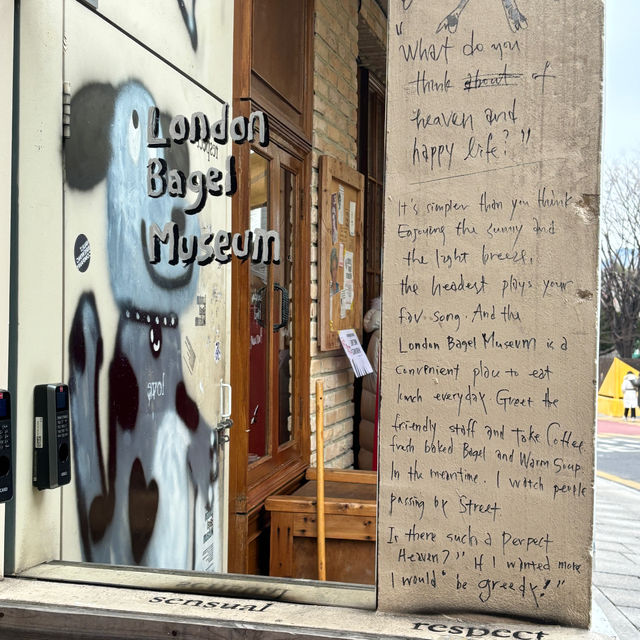 London
Bagel
Museum
love
"What do you
think about of
heaven and
happy life?"
It's simpler than you think
Enjoying the sunny and
the light breeze,
the headest plays your
fav song. And the
London Bagel Museum is a
convenient place to eat
lunch everyday. Greet the
friendly staff and Take Coffee
fresh baked Bagel and Warm Soup
In the meantime. I watch people
passing by Street.
Is there such a Perpect
Heaven?" If I wanted more
I would be greedy!"
sensual
respect